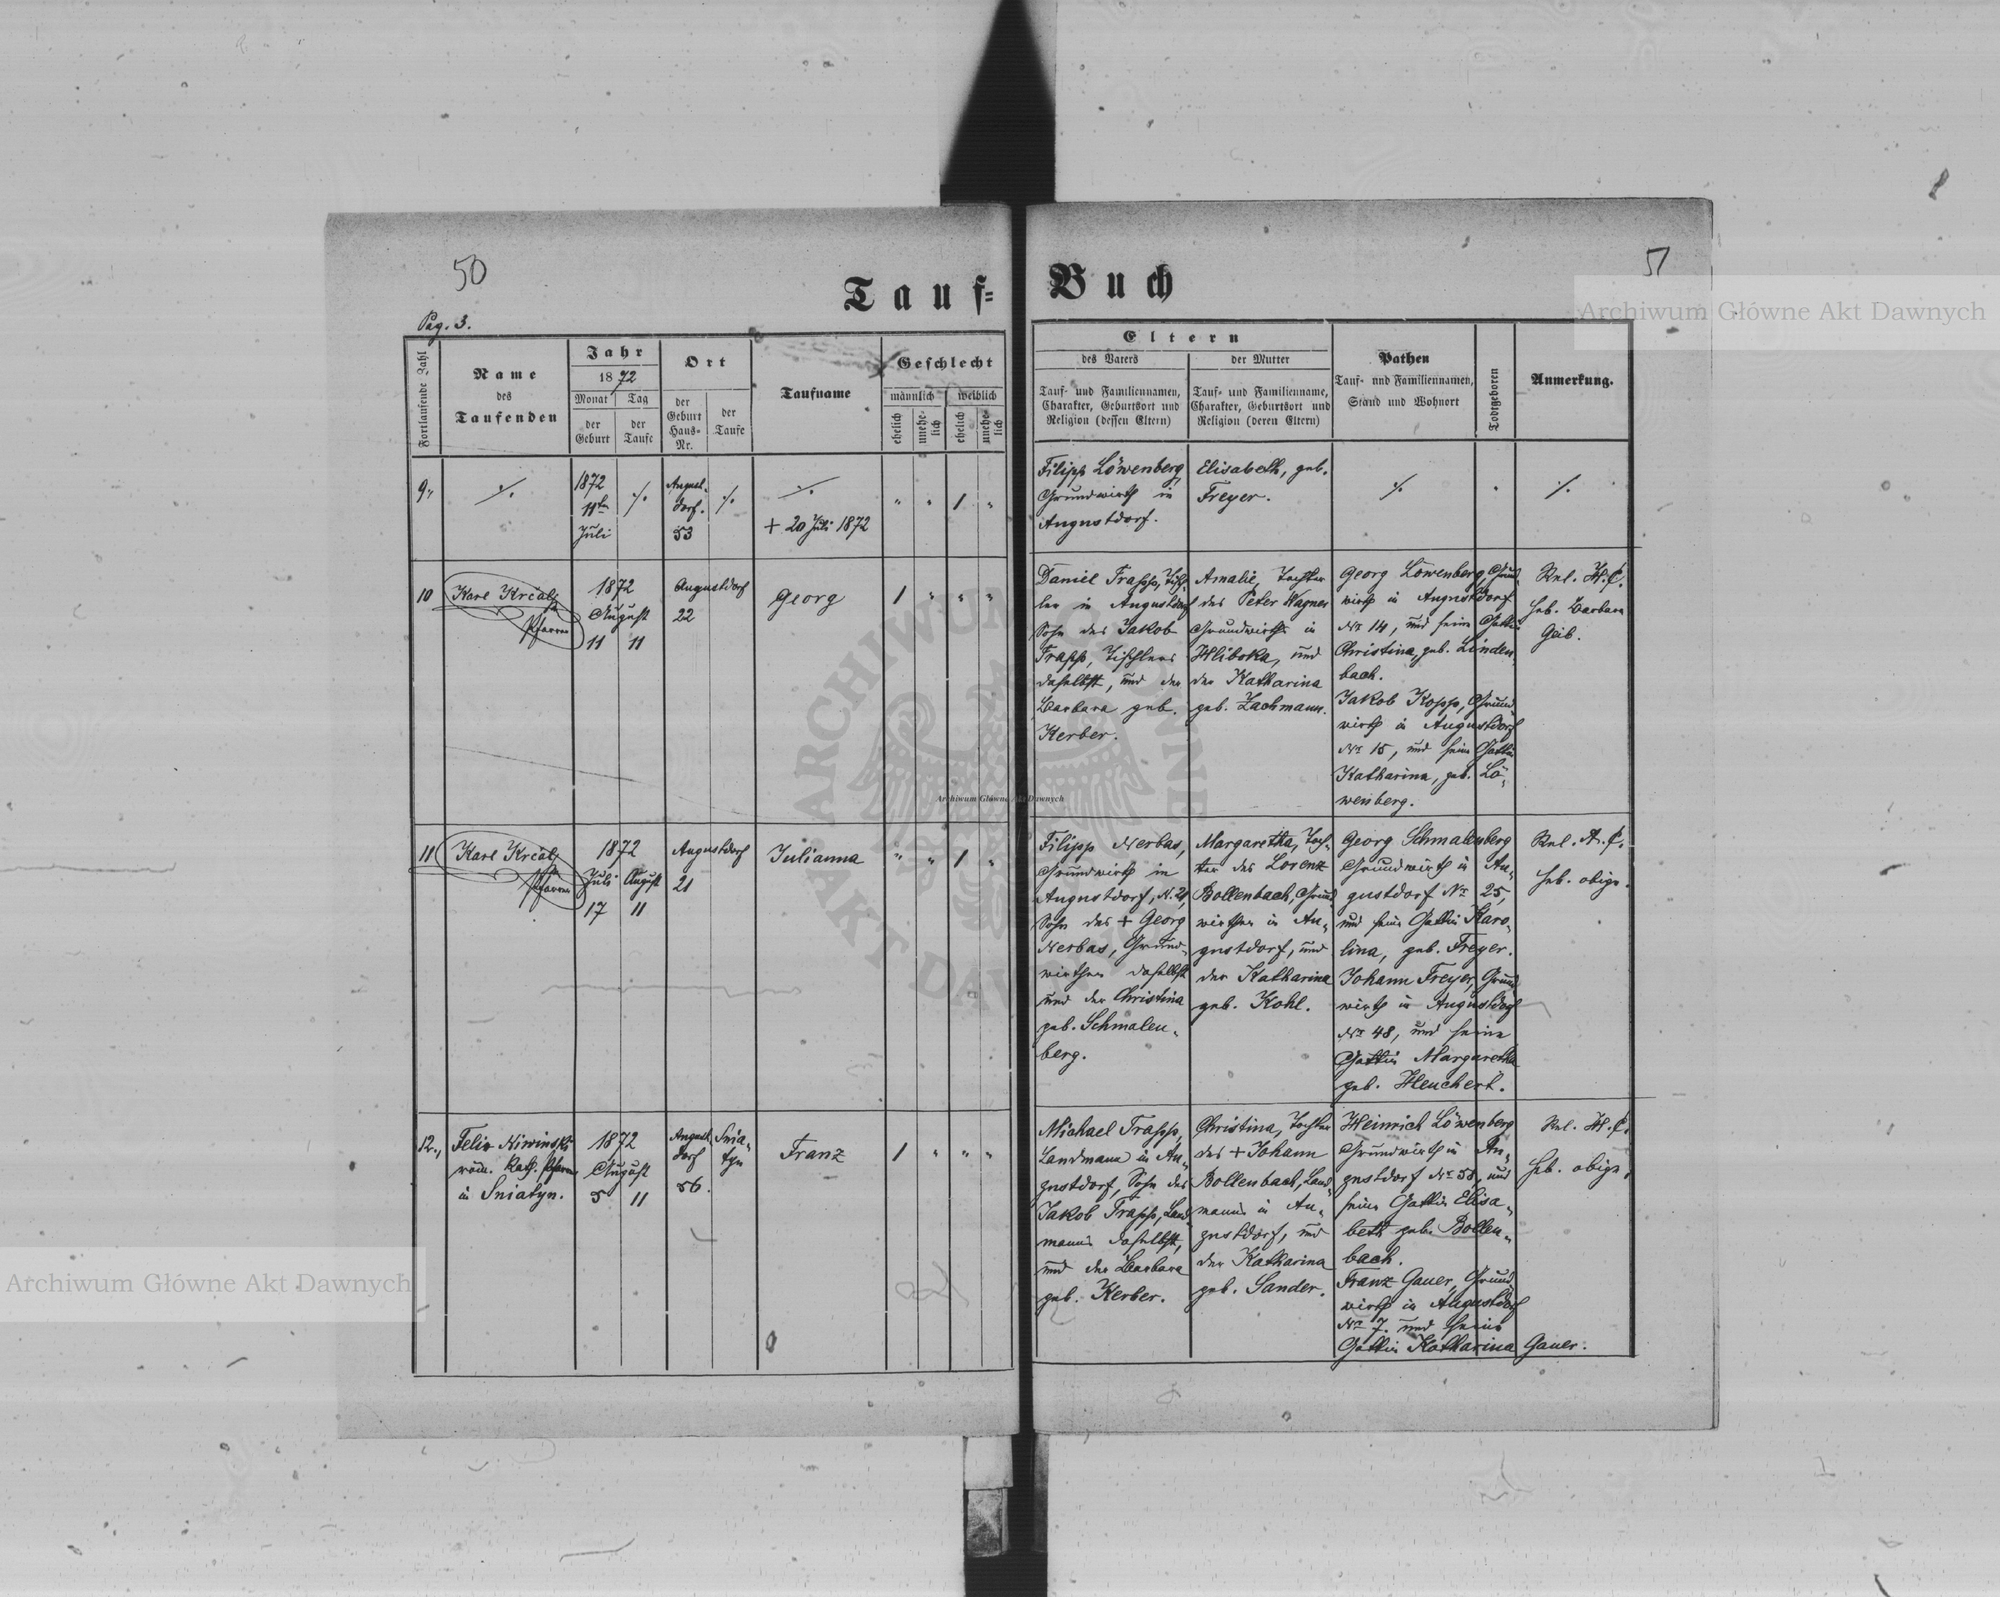 50
51
Tauf=
Buch
Pag. 3.
Fortlaufende Zahl
Name
des
Taufenden
Jahr
1872
Monat
Tag
der
Geburt
der
Taufe
Ort
der
Geburt
Haus-
Nr.
der
Taufe
Taufname
Geschlecht
männlich
weiblich
ehelich
unehe-
lich
ehelich
unehe-
lich
Eltern
des Vaters
Tauf- und Familiennamen,
Charakter, Geburtsort und
Religion (dessen Eltern)
der Mutter
Tauf- und Familienname,
Charakter, Geburtsort und
Religion (deren Eltern)
Pathen
Tauf- und Familiennamen,
Stand und Wohnort
Todtgeboren
Anmerkung.
9.
./.
1872
11ten
Juli
./.
August-
dorf.
53
./.
./.
+ 20 Juli 1872
" " 1 "
Filipp Löwenberg
Grundwirth in
Augustdorf.
Elisabeth, geb.
Freyer.
./.
./.
10
Karl Krčal
Pfarrer
1872
August
11 11
Augustdorf
22
Georg
1 " " "
Daniel Trapp, Tisch-
ler in Augustdorf
Sohn des Jakob
Trapp, Tischlers
daselbst, und der
Barbara geb.
Kerber.
Amalie, Tochter
des Peter Wagner
Grundwirths in
Hliboka, und
der Katharina
geb. Zachmann.
Georg Löwenberg, Grund-
wirth in Augustdorf
Nr 14, und seine Gattin
Christina, geb. Linden-
bach.
Jakob Kopp, Grund-
wirth in Augustdorf
Nr 15, und seine Gattin
Katharina, geb. Lö-
wenberg.
Rel. H. C.
Heb. Barbara
Geib.
11
Karl Krčal
Pfarrer
1872
Juli August
17 11
Augustdorf
21
Julianna
" " 1 "
Filipp Nerbas,
Grundwirth in
Augustdorf, N. 21,
Sohn des + Georg
Nerbas, Grund-
wirthen daselbst
und der Christina
geb. Schmalen-
berg.
Margaretha, Toch-
ter des Lorenz
Bollenbach, Grund-
wirthen in Au-
gustdorf, und
der Katharina
geb. Kohl.
Georg Schmalenberg
Grundwirth in Au-
gustdorf Nr 25,
und seine Gattin Karo-
lina, geb. Freyer.
Johann Freyer, Grund-
wirth in Augustdorf
Nr 48, und seine
Gattin Margaretha
geb. Heuchert.
Rel. A. C.
Heb. obige.
12.
Felix Niwinski
röm. kath. Pfarrer
in Sniatyn.
1872
August
5 11
August-
dorf
56.
Snia-
tyn
Franz
1 " " "
Michael Trapp,
Landmann in Au-
gustdorf, Sohn des
Jakob Trapp, Land-
manns daselbst,
und der Barbara
geb. Kerber.
Christina, Tochter
des + Johann
Bollenbach, Land-
manns in Au-
gustdorf, und
der Katharina
geb. Sander.
Heinrich Löwenberg
Grundwirth in Au-
gustdorf Nr 58, und
seine Gattin Elisa-
beth geb. Bollen-
bach.
Franz Gauer, Grund-
wirth in Augustdorf
Nr 7. und seine
Gattin Katharina Gauer.
Rel. H. C.
Heb. obige.
Archiwum Główne Akt Dawnych
Archiwum Główne Akt Dawnych
Archiwum Główne Akt Dawnych
ARCHIWUM GŁÓWNE AKT DAWNYCH